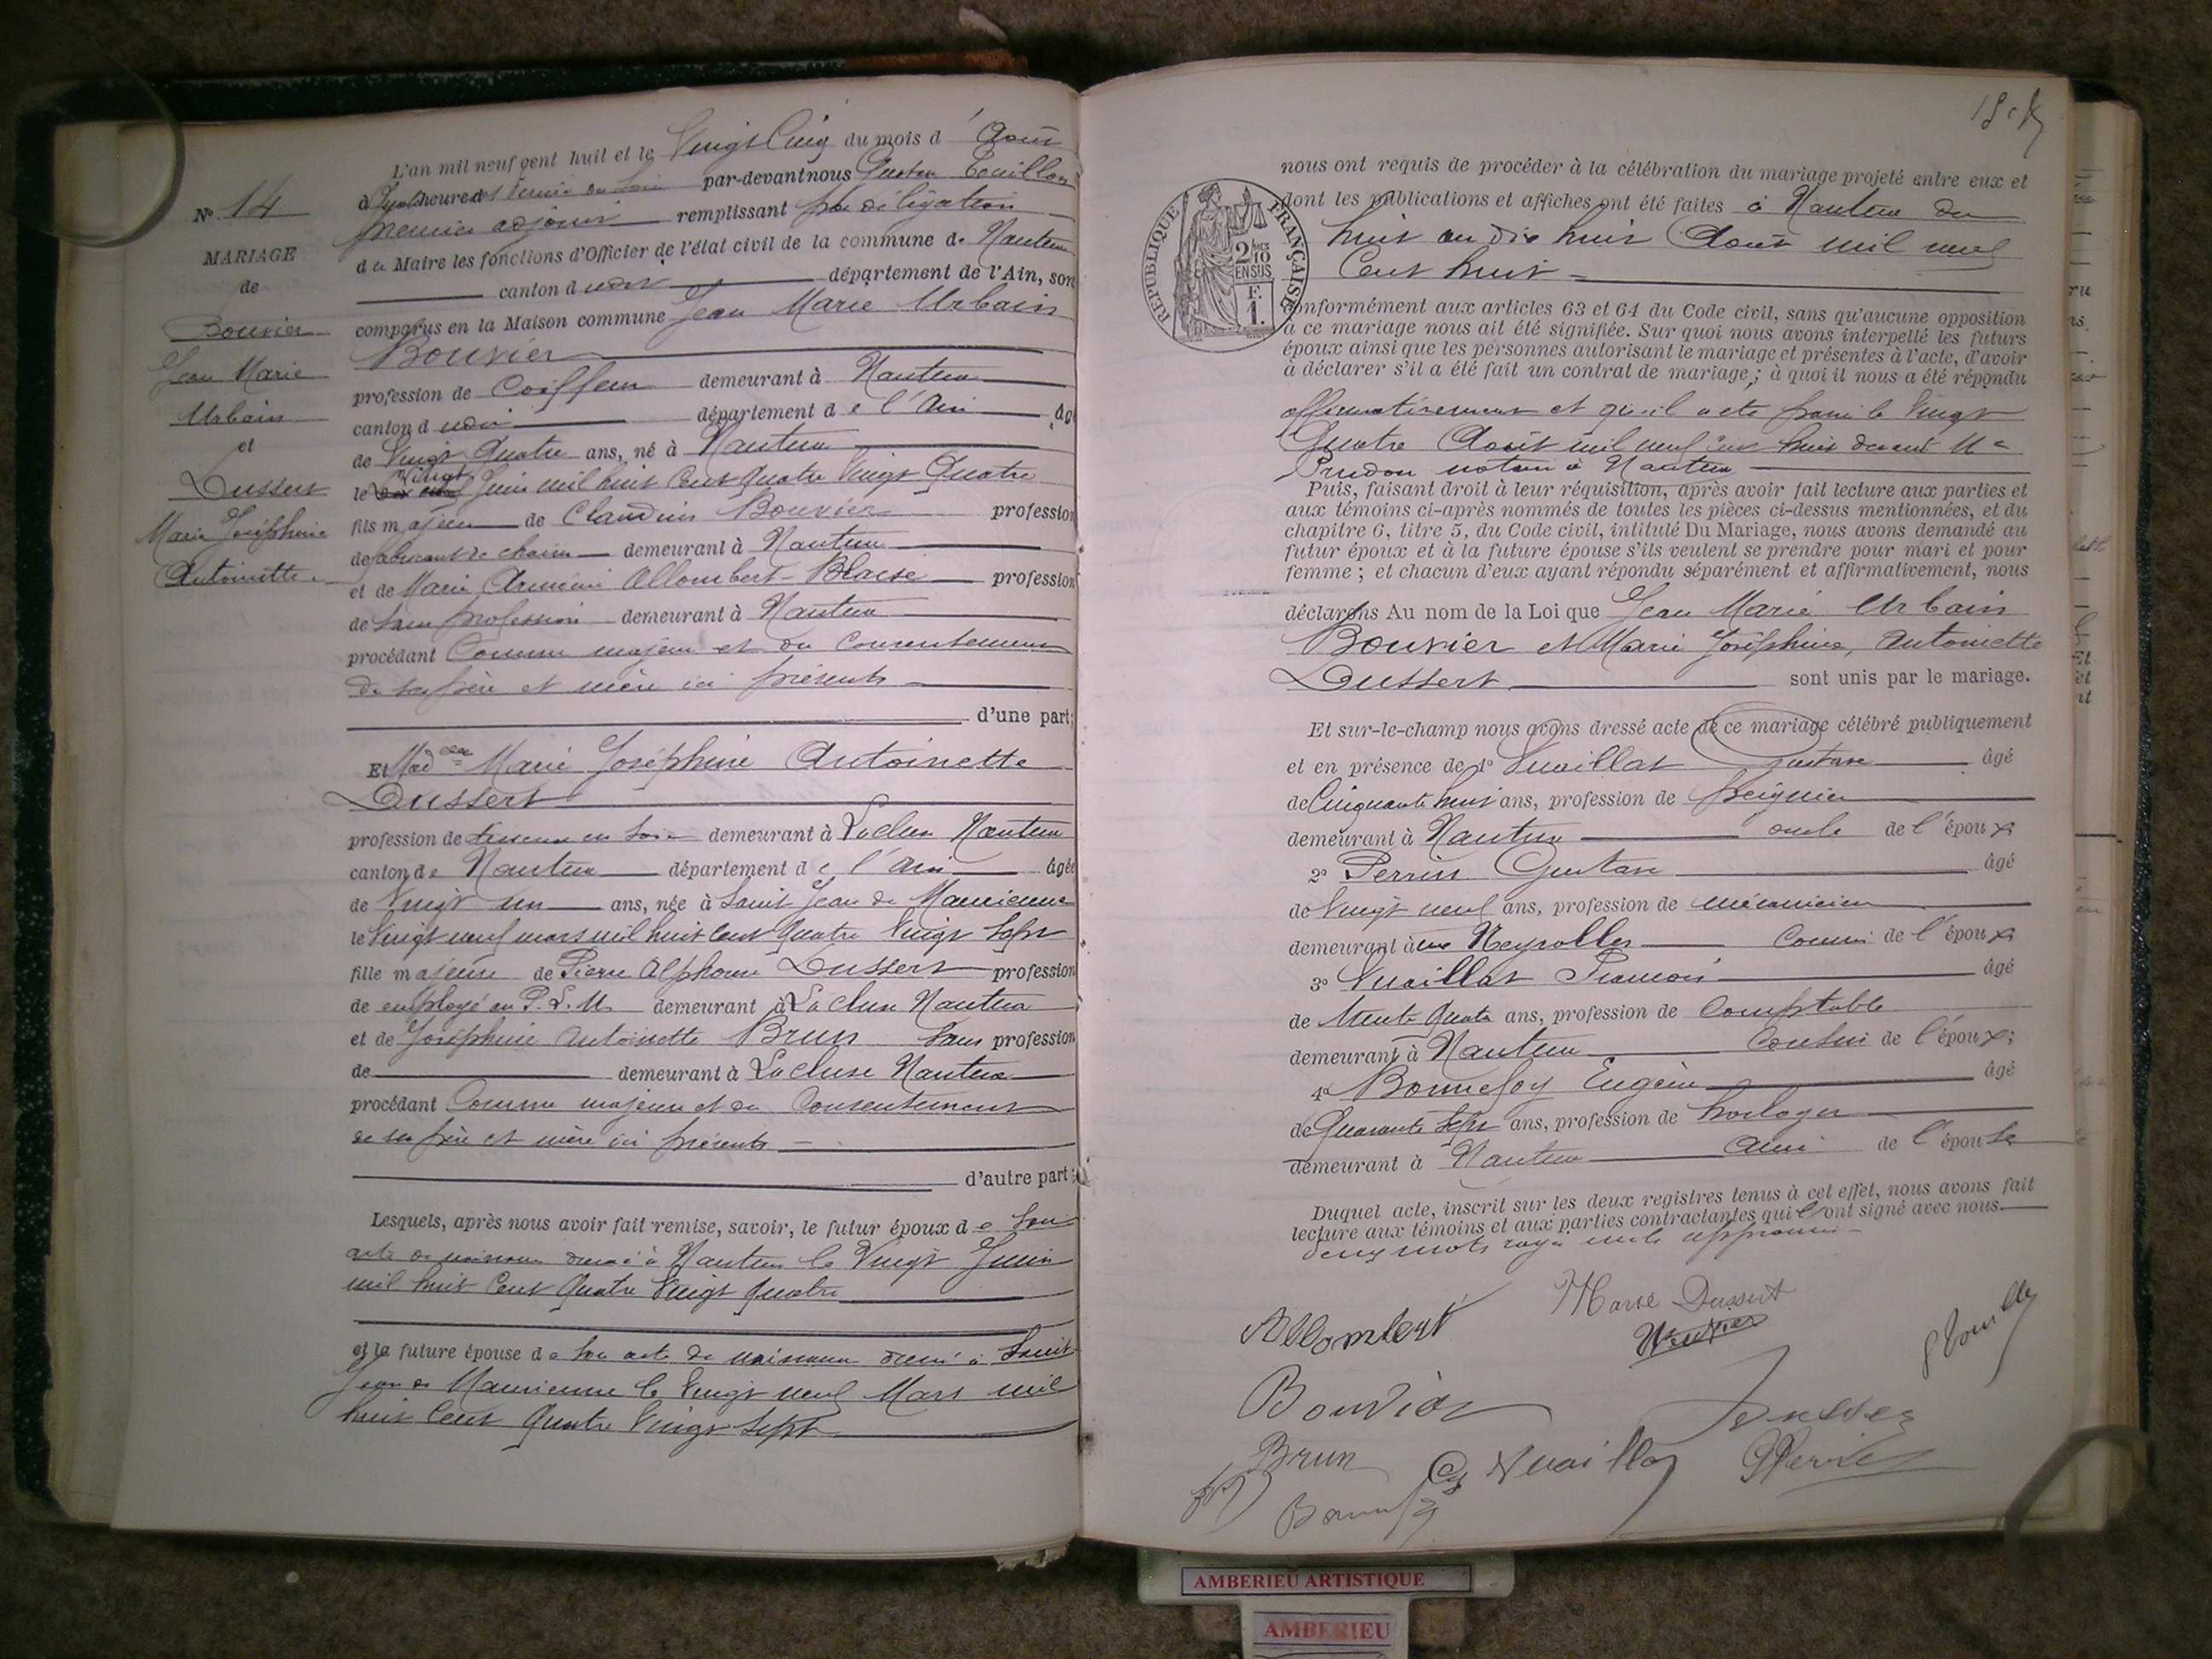 N° 14
MARIAGE
de
Bouvier
Jean Marie
Urbain
et
Dussert
Marie Joséphine
Antoinette
L'an mil neuf cent huit et le Vingt Cinq du mois d'Août
à heures du soir par-devant nous Gustave Touillon
premier adjoint remplissant par délégation
du Maire les fonctions d'Officier de l'état civil de la commune de Nantua
canton dudit département de l'Ain, sont
comparus en la Maison commune Jean Marie Urbain
Bouvier
profession de Coiffeur demeurant à Nantua
canton dudit département de l'Ain âgé
de Vingt Quatre ans, né à Nantua
le Vingt Juin mil huit Cent Quatre Vingt Quatre
fils majeur de Claudius Bouvier profession
de fabricant de chaises demeurant à Nantua
et de Marie Allombert-Blaise profession
de sans profession demeurant à Nantua
procédant Comme majeur et du Consentement
de ses père et mère ici présents
d'une part;
Et Mad elle Marie Joséphine Antoinette
Dussert
profession de tisseuse en soie demeurant à La Cluse Nantua
canton de Nantua département de l'Ain âgée
de Vingt un ans, née à Saint Jean de Maurienne
le Vingt neuf mars mil huit Cent Quatre Vingt Sept
fille majeure de Pierre Alphonse Dussert profession
de employé au P.L.M. demeurant à La Cluse Nantua
et de Joséphine Antoinette Brun Sans profession
de demeurant à La Cluse Nantua
procédant Comme majeure et du Consentement
de ses père et mère ici présents
d'autre part;
Lesquels, après nous avoir fait remise, savoir, le futur époux de Son
acte de naissance dressé à Nantua le Vingt Juin
mil huit Cent Quatre Vingt Quatre
et la future épouse de Son acte de naissance dressé à Saint
Jean de Maurienne le Vingt neuf Mars mil
huit Cent Quatre Vingt Sept
nous ont requis de procéder à la célébration du mariage projeté entre eux et
dont les publications et affiches ont été faites à Nantua du
huit au dix huit Août mil neuf
Cent huit
RÉPUBLIQUE FRANÇAISE
2/10 EN SUS
F.
1.
conformément aux articles 63 et 64 du Code civil, sans qu'aucune opposition
à ce mariage nous ait été signifiée. Sur quoi nous avons interpellé les futurs
époux ainsi que les personnes autorisant le mariage et présentes à l'acte, d'avoir
à déclarer s'il a été fait un contrat de mariage; à quoi il nous a été répondu
affirmativement et qu'il a été passé le Vingt
Quatre Août mil neuf cent huit devant Me
Prudon notaire à Nantua
Puis, faisant droit à leur réquisition, après avoir fait lecture aux parties et
aux témoins ci-après nommés de toutes les pièces ci-dessus mentionnées, et du
chapitre 6, titre 5, du Code civil, intitulé Du Mariage, nous avons demandé au
futur époux et à la future épouse s'ils veulent se prendre pour mari et pour
femme; et chacun d'eux ayant répondu séparément et affirmativement, nous
déclarons Au nom de la Loi que Jean Marie Urbain
Bouvier et Marie Joséphine, Antoinette
Dussert sont unis par le mariage.
Et sur-le-champ nous avons dressé acte de ce mariage célébré publiquement
et en présence de 1° Vuaillat Gustave âgé
de Cinquante huit ans, profession de peignier
demeurant à Nantua oncle de l'époux
2° Perrin Gustave âgé
de Vingt neuf ans, profession de mécanicien
demeurant à aux Neyrolles Cousin de l'époux
3° Vuaillat François âgé
de trente Quatre ans, profession de Comptable
demeurant à Nantua Cousin de l'époux;
4° Bonnefoy Eugène âgé
de Quarante Sept ans, profession de horloger
demeurant à Nantua ami de l'épouse
Duquel acte, inscrit sur les deux registres tenus à cet effet, nous avons fait
lecture aux témoins et aux parties contractantes qui l'ont signé avec nous.
deux mots rayés nuls approuvés
Allombert
Marie Dussert
Bouvier
Bouvier
Dussert
Brun
G Vuaillat
G Perrin
AMBERIEU ARTISTIQUE
AMBERIEU